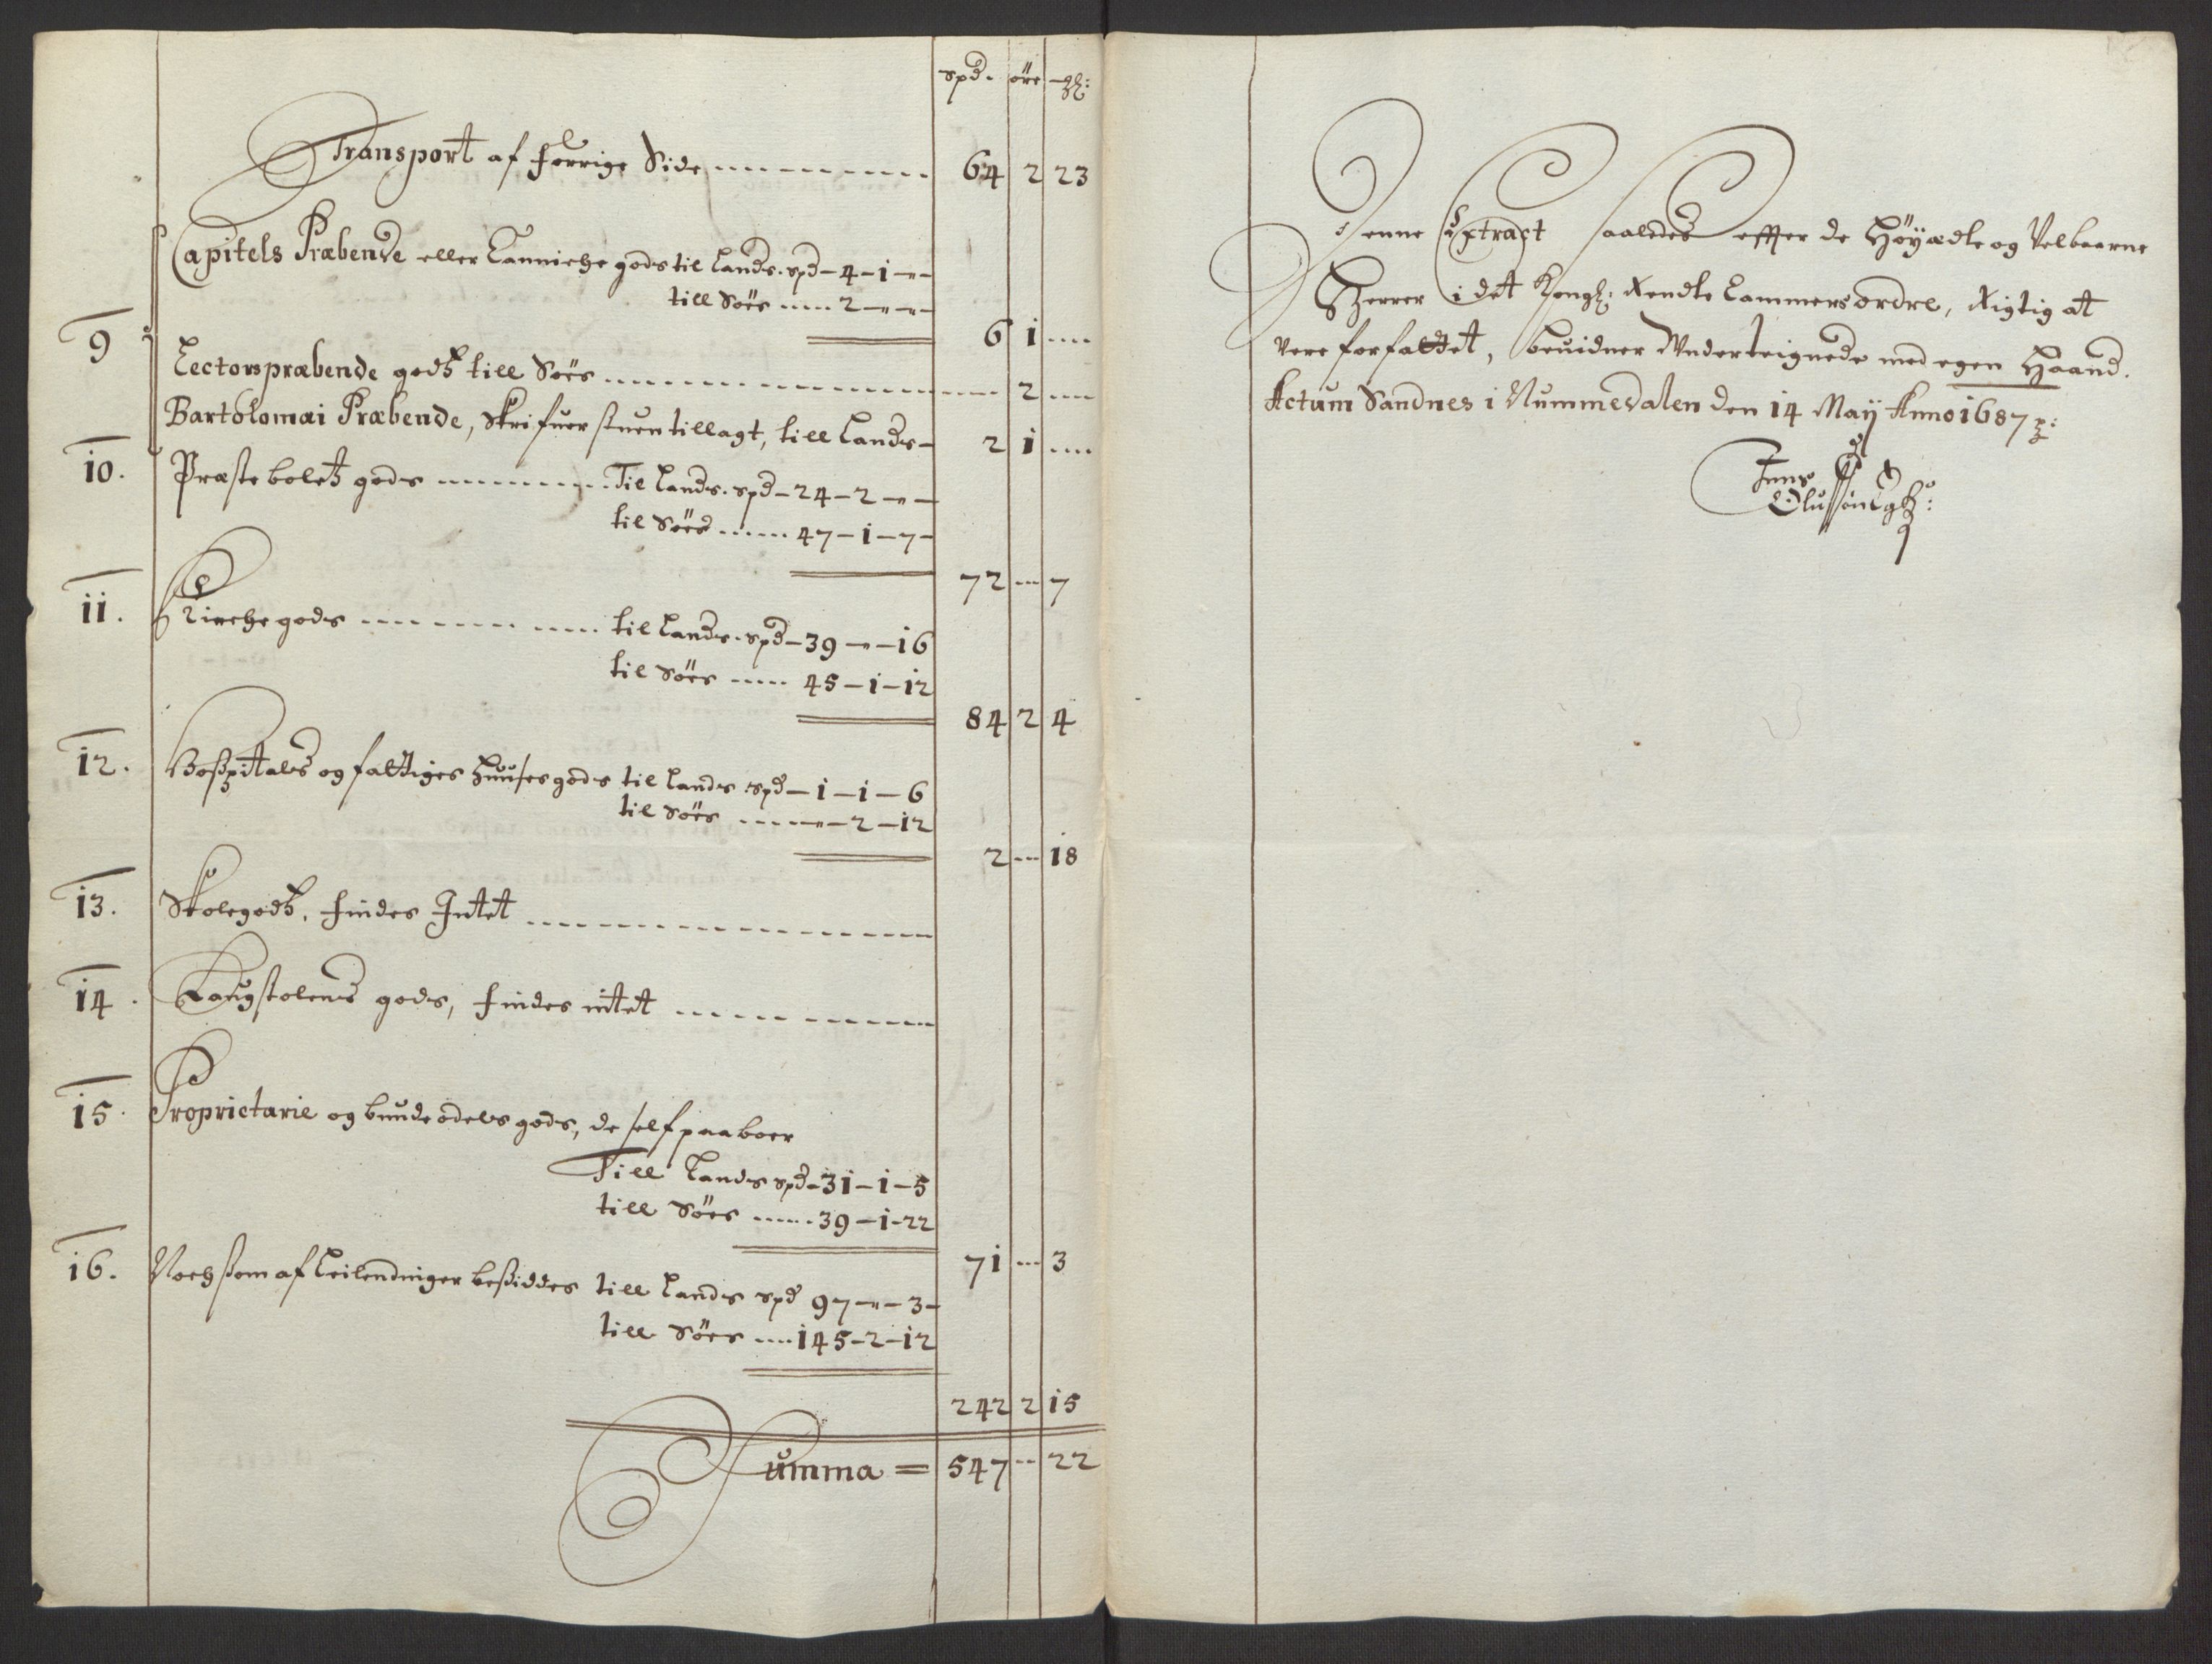 spd. öre mk:
Transport af forrige Side 64 2 23
Capitels Præbende eller Canniche gods til Lands. spd – 4 – 1 – " –
till Söes 2 – " – " –
6 1
9
Lectorspræbende godtz till Söes 2
Bartolomæi Præbende, Skrifuer stuen tillagt, till Lands – 2 1
10. Præsteboletz gods Til Lands. spd – 24 – 2 – " –
til Söes 47 – 1 – 7 –
72 7
11. Kirche gods til Lands. spd – 39 – " – 16
til Söes 45 – 1 – 12
84 2 4
12. Hospitals og fattiges Huuses gods til Lands spd – 1 – 1 – 6
til Söes " – 2 – 12
2 18
13. Skolegodtz, findes Intet
14. Laugstolens gods, findes intet
15. Proprietarie og bunde odels gods, de self paaboer
Till Lands spd – 31 – 1 – 5
till Söes 39 – 1 – 22
71 3
16. Noch som af Leilendinger besiddes till Lands spd 97 – " – 3 –
till Söes 145 – 2 – 12
242 2 15
Summa = 547 22
Denne Extract saaledes effter de Höyædle og Velbaarne
Herrer i det Kongl: Rendte Cammers ordre, Rigtig at
vere forfattet, beuidner Underteignede med egen Haand.
Actum Sandnes i Nummedalen den 14 Maij Anno 1687
Jens
Olufsön